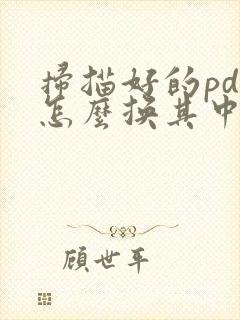 掃描好的pd
怎麼換其中
顧世平